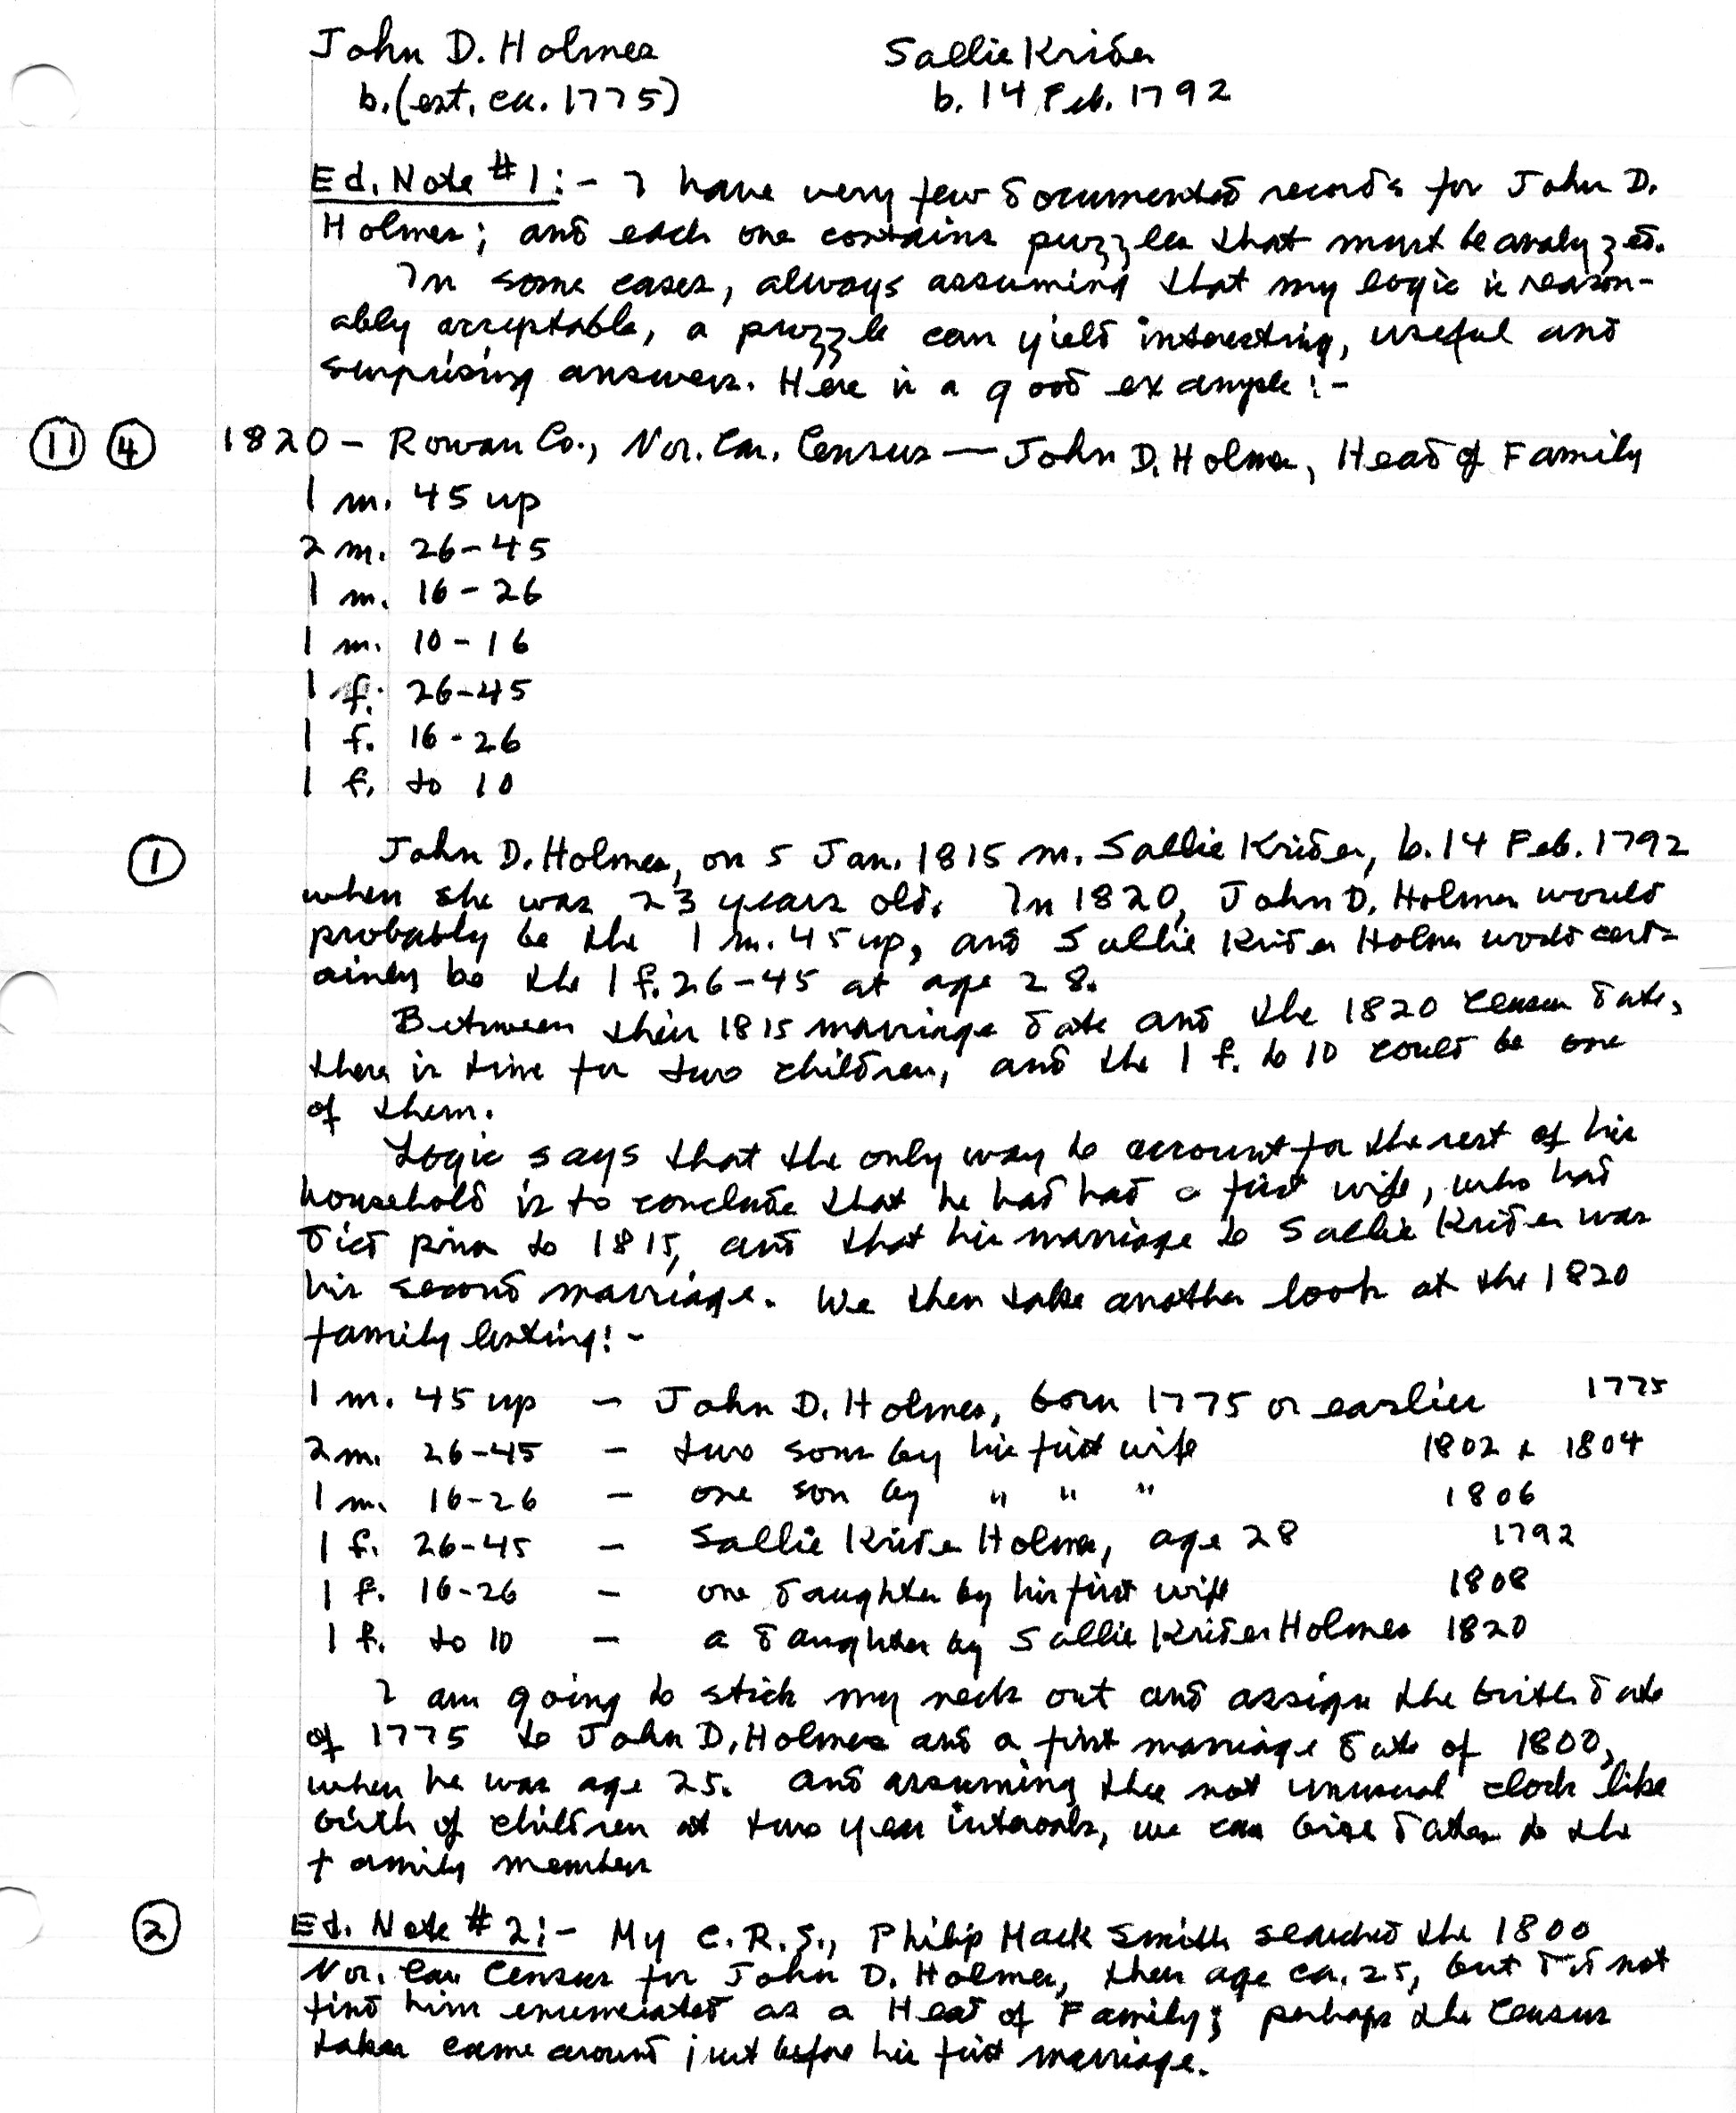 John D. Holmes Sallie Krider
b. (est. ca. 1775) b. 14 Feb. 1792
Ed. Note #1:- I have very few documented records for John D.
Holmes; and each one contains puzzles that must be analyzed.
In some cases, always assuming that my logic is reason-
ably acceptable, a puzzle can yield interesting, useful and
surprising answers. Here is a good example:-
11 4 1820 - Rowan Co., Nor. Car. Census — John D. Holmes, Head of Family
1 m. 45 up
2 m. 26-45
1 m. 16-26
1 m. 10-16
1 f. 26-45
1 f. 16-26
1 f. to 10
1 John D. Holmes, on 5 Jan. 1815 m. Sallie Krider, b. 14 Feb. 1792
when she was 23 years old. In 1820, John D. Holmes would
probably be the 1 m. 45 up, and Sallie Krider Holmes would cert-
ainly be the 1 f. 26-45 at age 28.
Between their 1815 marriage date and the 1820 census date,
there is time for two children, and the 1 f. to 10 could be one
of them.
Logic says that the only way to account for the rest of his
household is to conclude that he had had a first wife, who had
died prior to 1815, and that his marriage to Sallie Krider was
his second marriage. We then take another look at the 1820
family listing:-
1 m. 45 up - John D. Holmes, born 1775 or earlier 1775
2 m. 26-45 - two sons by his first wife 1802 & 1804
1 m. 16-26 - one son by " " " 1806
1 f. 26-45 - Sallie Krider Holmes, age 28 1792
1 f. 16-26 - one daughter by his first wife 1808
1 f. to 10 - a daughter by Sallie Krider Holmes 1820
I am going to stick my neck out and assign the birth date
of 1775 to John D. Holmes and a first marriage date of 1800,
when he was age 25. And assuming the not unusual clock like
birth of children at two year intervals, we can give dates to the
family members
2 Ed. Note #2:- My C.R.S., Philip Mack Smith searched the 1800
Nor. Car. Census for John D. Holmes, then age ca. 25, but did not
find him enumerated as a Head of Family; perhaps the census
taker came around just before his first marriage.